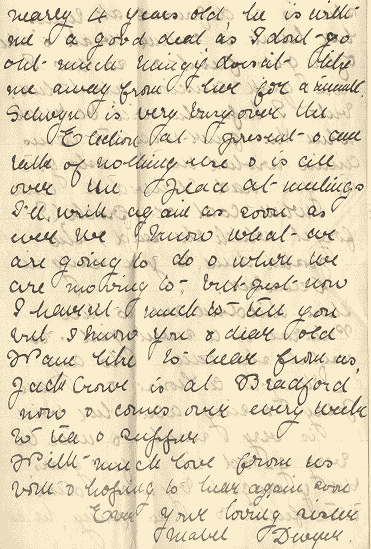 nearly 4 years old, he is with
me a good deal, as I dont go
out much nangy doesnt like
me away from her for a minute.
Selwyn is very busy over the
Election at present & can
talk of nothing else & is all
over the place at meetings
I'll write again as soon as
ever we know what we
are going to do & where we
are moving to, but just now
I havent much to tell you
but I know you & dear old
like to hear from us,
Jack Crowe is at Bradford
now & comes over every week
to tea & supper
With much love from us
both & hoping to hear again soon
Ever your loving sister
Mabel Dwyer.